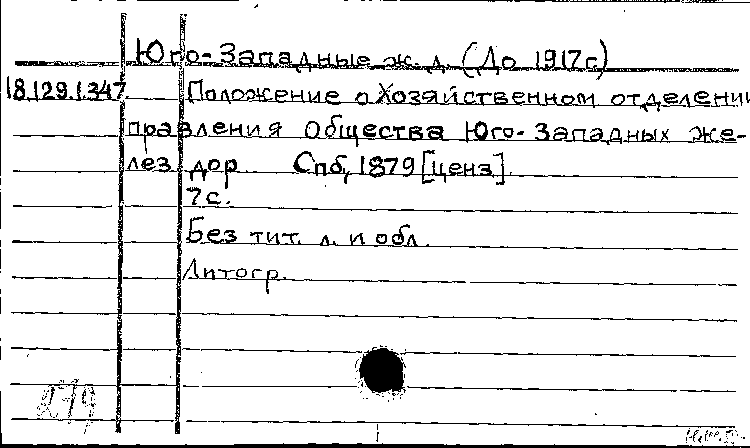 Юго-Западные ж. д. (До 1917 г.)
18.129.1.347 Положение о Хозяйственном отделении
правления Общества Юго-Западных же-
лез дор Спб, 1879 [ценз].
7 с.
Без тит. л. и обл.
Литогр.
279